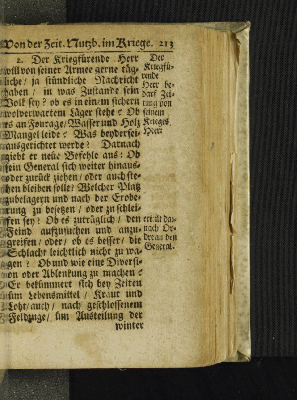 Von der Zeit. Nutzb. im Kriege. 213
2. Der Kriegfürende Herr
will von seiner Armee gerne täg-
liche/ ja stündliche Nachricht
haben/ in was Zustande sein
Volk sey? ob es in ein/m sichern
wolverwartem Läger stehe? Ob
es an Fourage/ Wasser und Holz
Mangel leide? Was beyderseits
ausgerichtet werde? Darnach
giebt er neue Befehle aus: Ob
sein General sich weiter hinaus
oder zurück ziehen/ oder auch ste-
hen bleiben solle? Welcher Platz
zubelagern und nach der Erobe-
rung zu besetzen/ oder zu schlei-
fen sey? Ob es zuträglich/ den
Feind aufzusuchen und anzu-
greifen/ oder/ ob es besser/ die
Schlacht leichtlich nicht zu wa-
gen? Ob und wie eine Diversi-
on oder Ablenkung zu machen?
Er bekümmert sich bey Zeiten
üm Lebensmittel/ Kraut und
Loht/ auch/ nach geschlossenem
Feldzuge/ üm Austeilung der
winter
Der
Kriegfü-
rende
Herr be-
darf Zei-
tung von
seinem
Krieges
Heer:
erteilt dar-
nach Or-
dre an den
General.